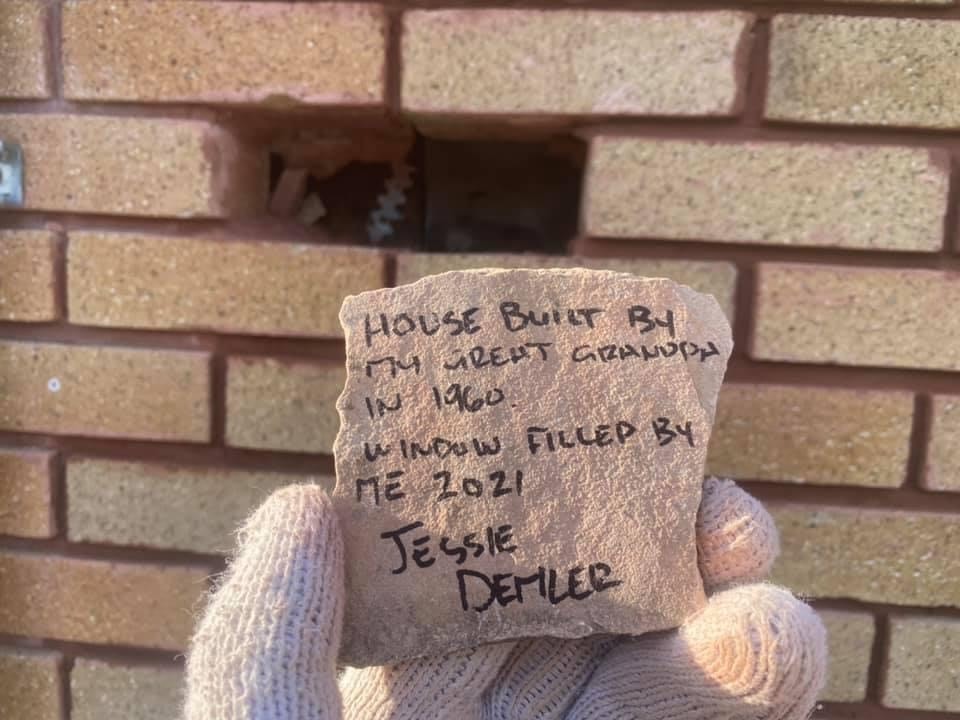 HOUSE BUILT BY
MY GREAT GRANDPA
IN 1960.
WINDOW FILLED BY
ME 2021
JESSIE
DEMLER